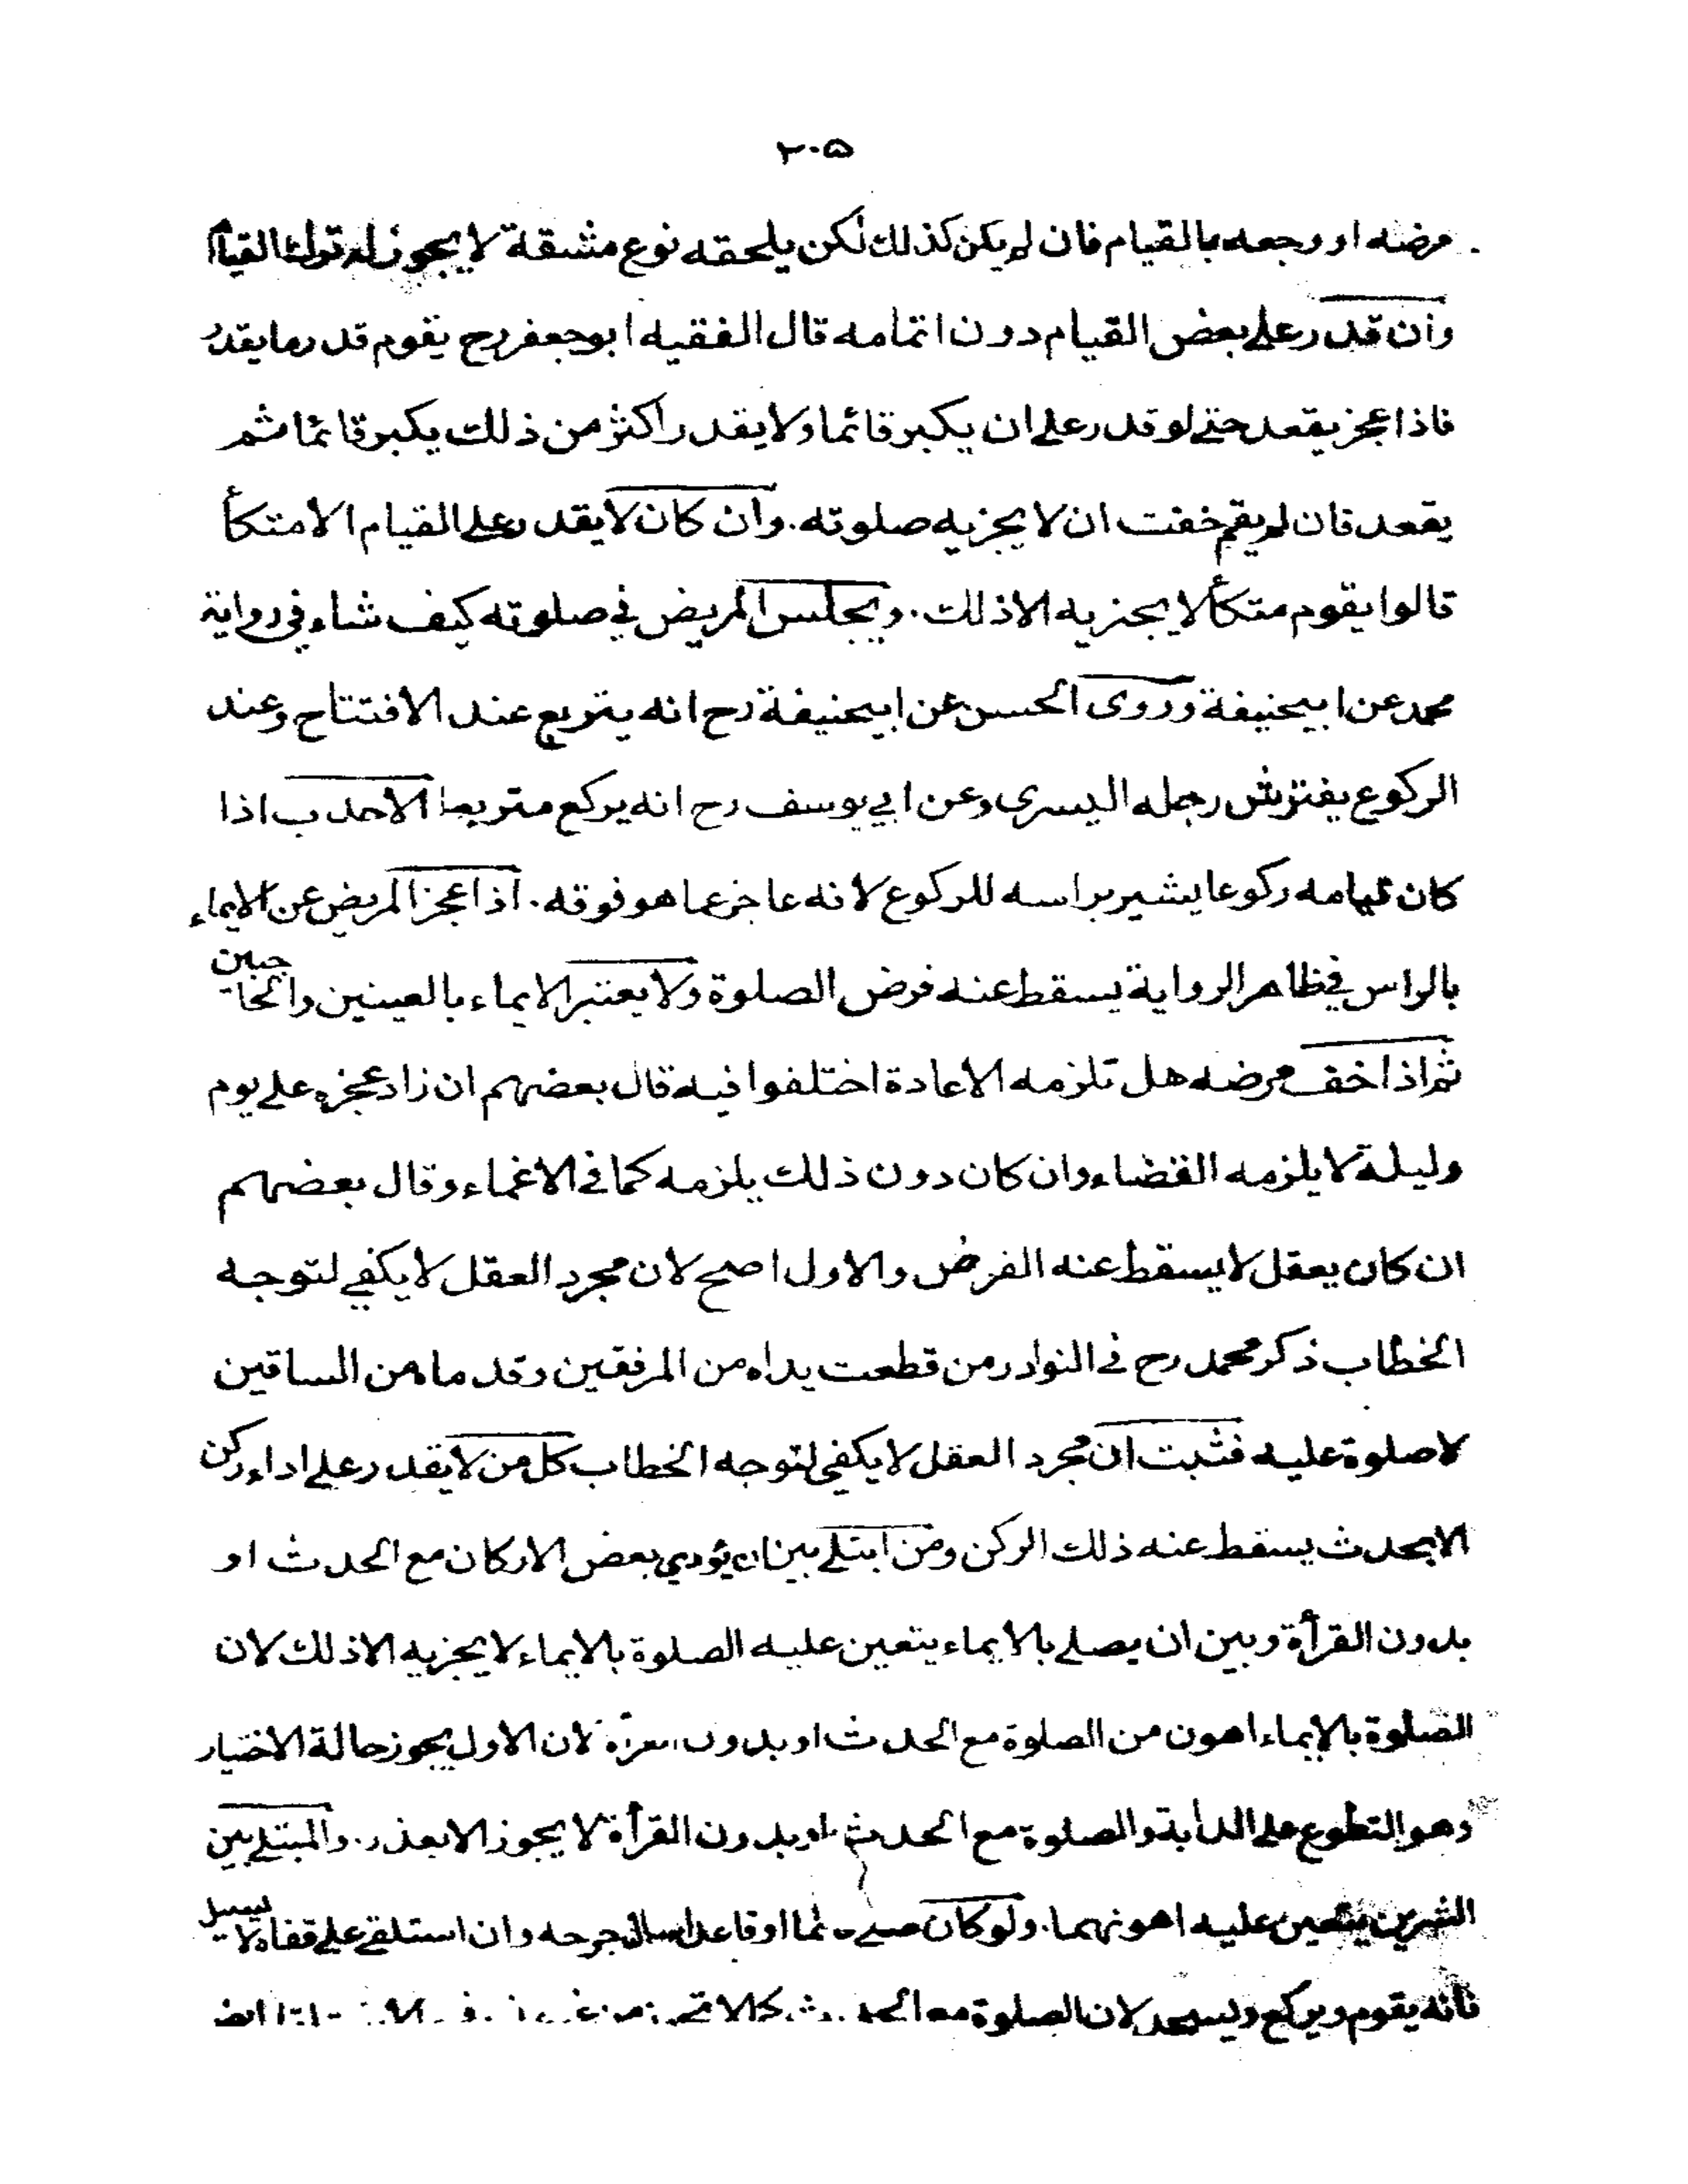 ٢٠٥
مرضه او وجعه بالقيام فان لم يكن كذلك لكن يلحقه نوع مشقة لا يجوز له ترك القيام
وان قدر على بعض القيام دون اتمامه قال الفقيه ابوجعفر رح يقوم قدر ما يقدر
فاذا عجز يقعد حتى لو قدر على ان يكبر قائما ولا يقدر اكثر من ذلك يكبر قائما ثم
يقعد فان لم يقم خفت ان لا يجزيه صلوته. وان كان لا يقدر على القيام الا متكأ
قالوا يقوم متكأ لا يجزيه الا ذلك. ويجلس المريض في صلوته كيف شاء في رواية
محمد عن ابيحنيفة وروى الحسن عن ابيحنيفة رح انه يتربع عند الافتتاح وعند
الركوع يفترش رجله اليسرى وعن ابي يوسف رح انه يركع متربعا الاحدب اذا
كان قيامه ركوعا يشير براسه للركوع لانه عاجز عما هو فوقه. اذا عجز المريض عن الايماء
بالراس في ظاهر الرواية يسقط عنه فرض الصلوة ولا يعتبر الايماء بالعينين والحاجبين
ثم اذا خف مرضه هل تلزمه الاعادة اختلفوا فيه قال بعضهم ان زاد عجزه على يوم
وليلة لا يلزمه القضاء وان كان دون ذلك يلزمه كما في الاغماء وقال بعضهم
ان كان يعقل لا يسقط عنه الفرض والاول اصح لان مجرد العقل لا يكفي لتوجه
الخطاب ذكر محمد رح في النوادر من قطعت يداه من المرفقين وقدماه من الساقين
لا صلوة عليه فثبت ان مجرد العقل لا يكفي لتوجه الخطاب كل من لا يقدر على اداء ركن
الا بحدث يسقط عنه ذلك الركن ومن ابتلى بين ان يؤدي بعض الاركان مع الحدث او
بدون القرأة وبين ان يصلي بالايماء يتعين عليه الصلوة بالايماء لا يجزيه الا ذلك لان
الصلوة بالايماء اهون من الصلوة مع الحدث او بدون القرأة لان الاول يجوز حالة الاختيار
وهو التطوع على الدابة والصلوة مع الحدث او بدون القرأة لا يجوز الا بعذر. والمبتلى بين
الشرين يتعين عليه اهونهما. ولو كان قائما او قاعدا سال جرحه وان استلقى على قفاه لا يسيل
فانه يقوم ويركع ويسجد لان الصلوة مع الحدث كما لا